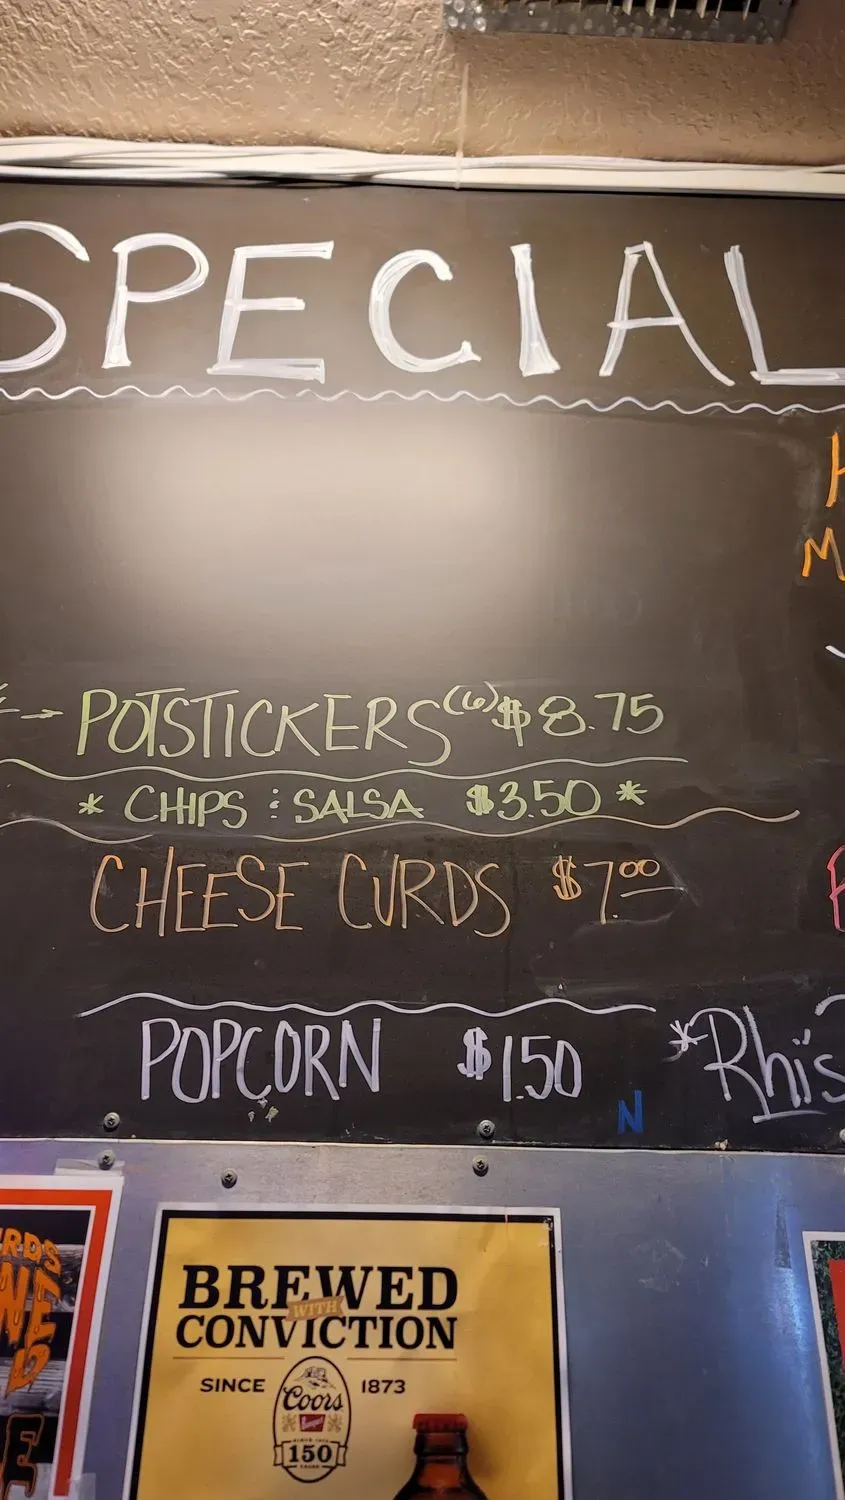 SPECIAL
POTSTICKERS (6) $8.75
* CHIPS & SALSA $3.50 *
CHEESE CURDS $7.00
POPCORN $1.50
*Rhis
N
BREWED
WITH
CONVICTION
SINCE 1873
Coors
Banquet
150